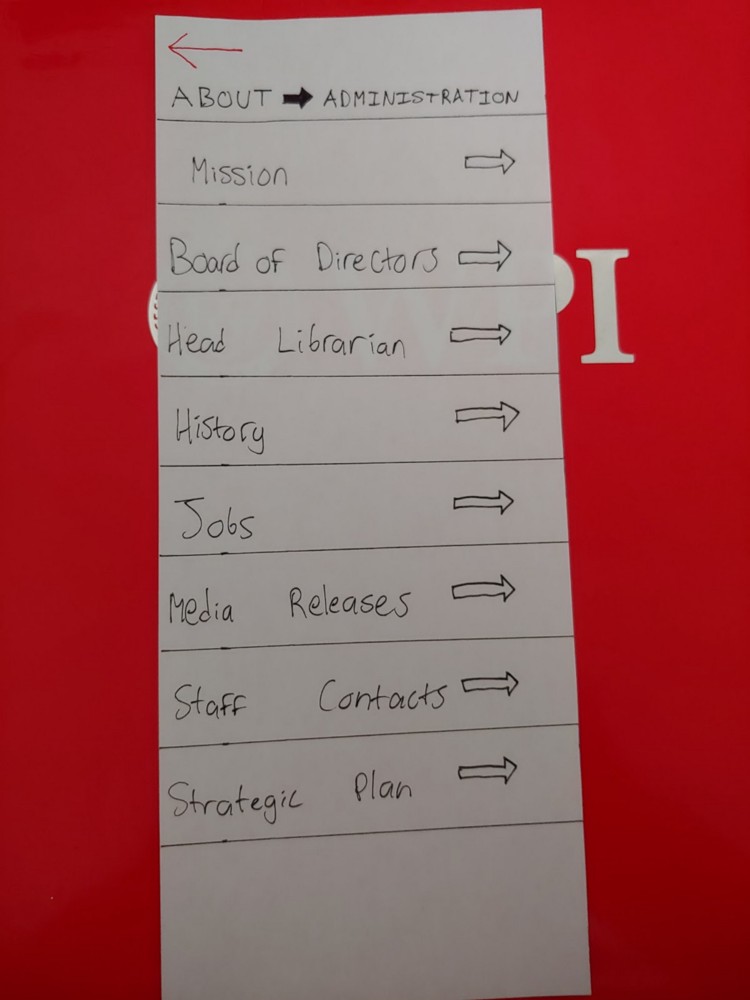 ←
ABOUT ➡ ADMINISTRATION
Mission ⇨
Board of Directors ⇨
Head Librarian ⇨
History ⇨
Jobs ⇨
Media Releases ⇨
Staff Contacts ⇨
Strategic Plan ⇨
PI